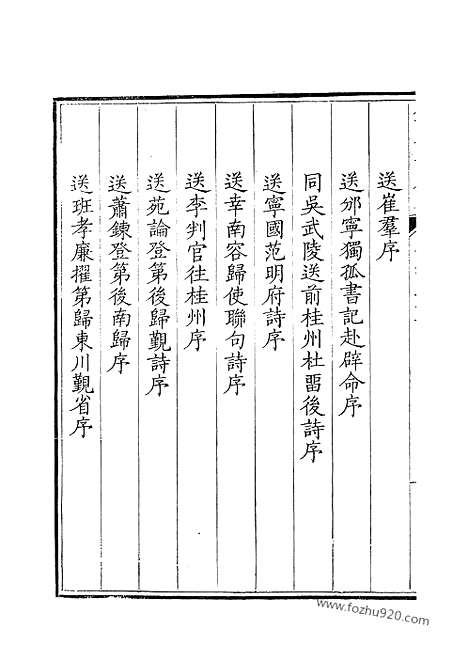 送崔羣序
送邠寧獨孤書記赴辟命序
同吳武陵送前桂州杜畱後詩序
送寧國范明府詩序
送幸南容歸使聯句詩序
送李判官往桂州序
送苑論登第後歸覲詩序
送蕭鍊登第後南歸序
送班孝廉擢第歸東川覲省序
www.fozhu920.com